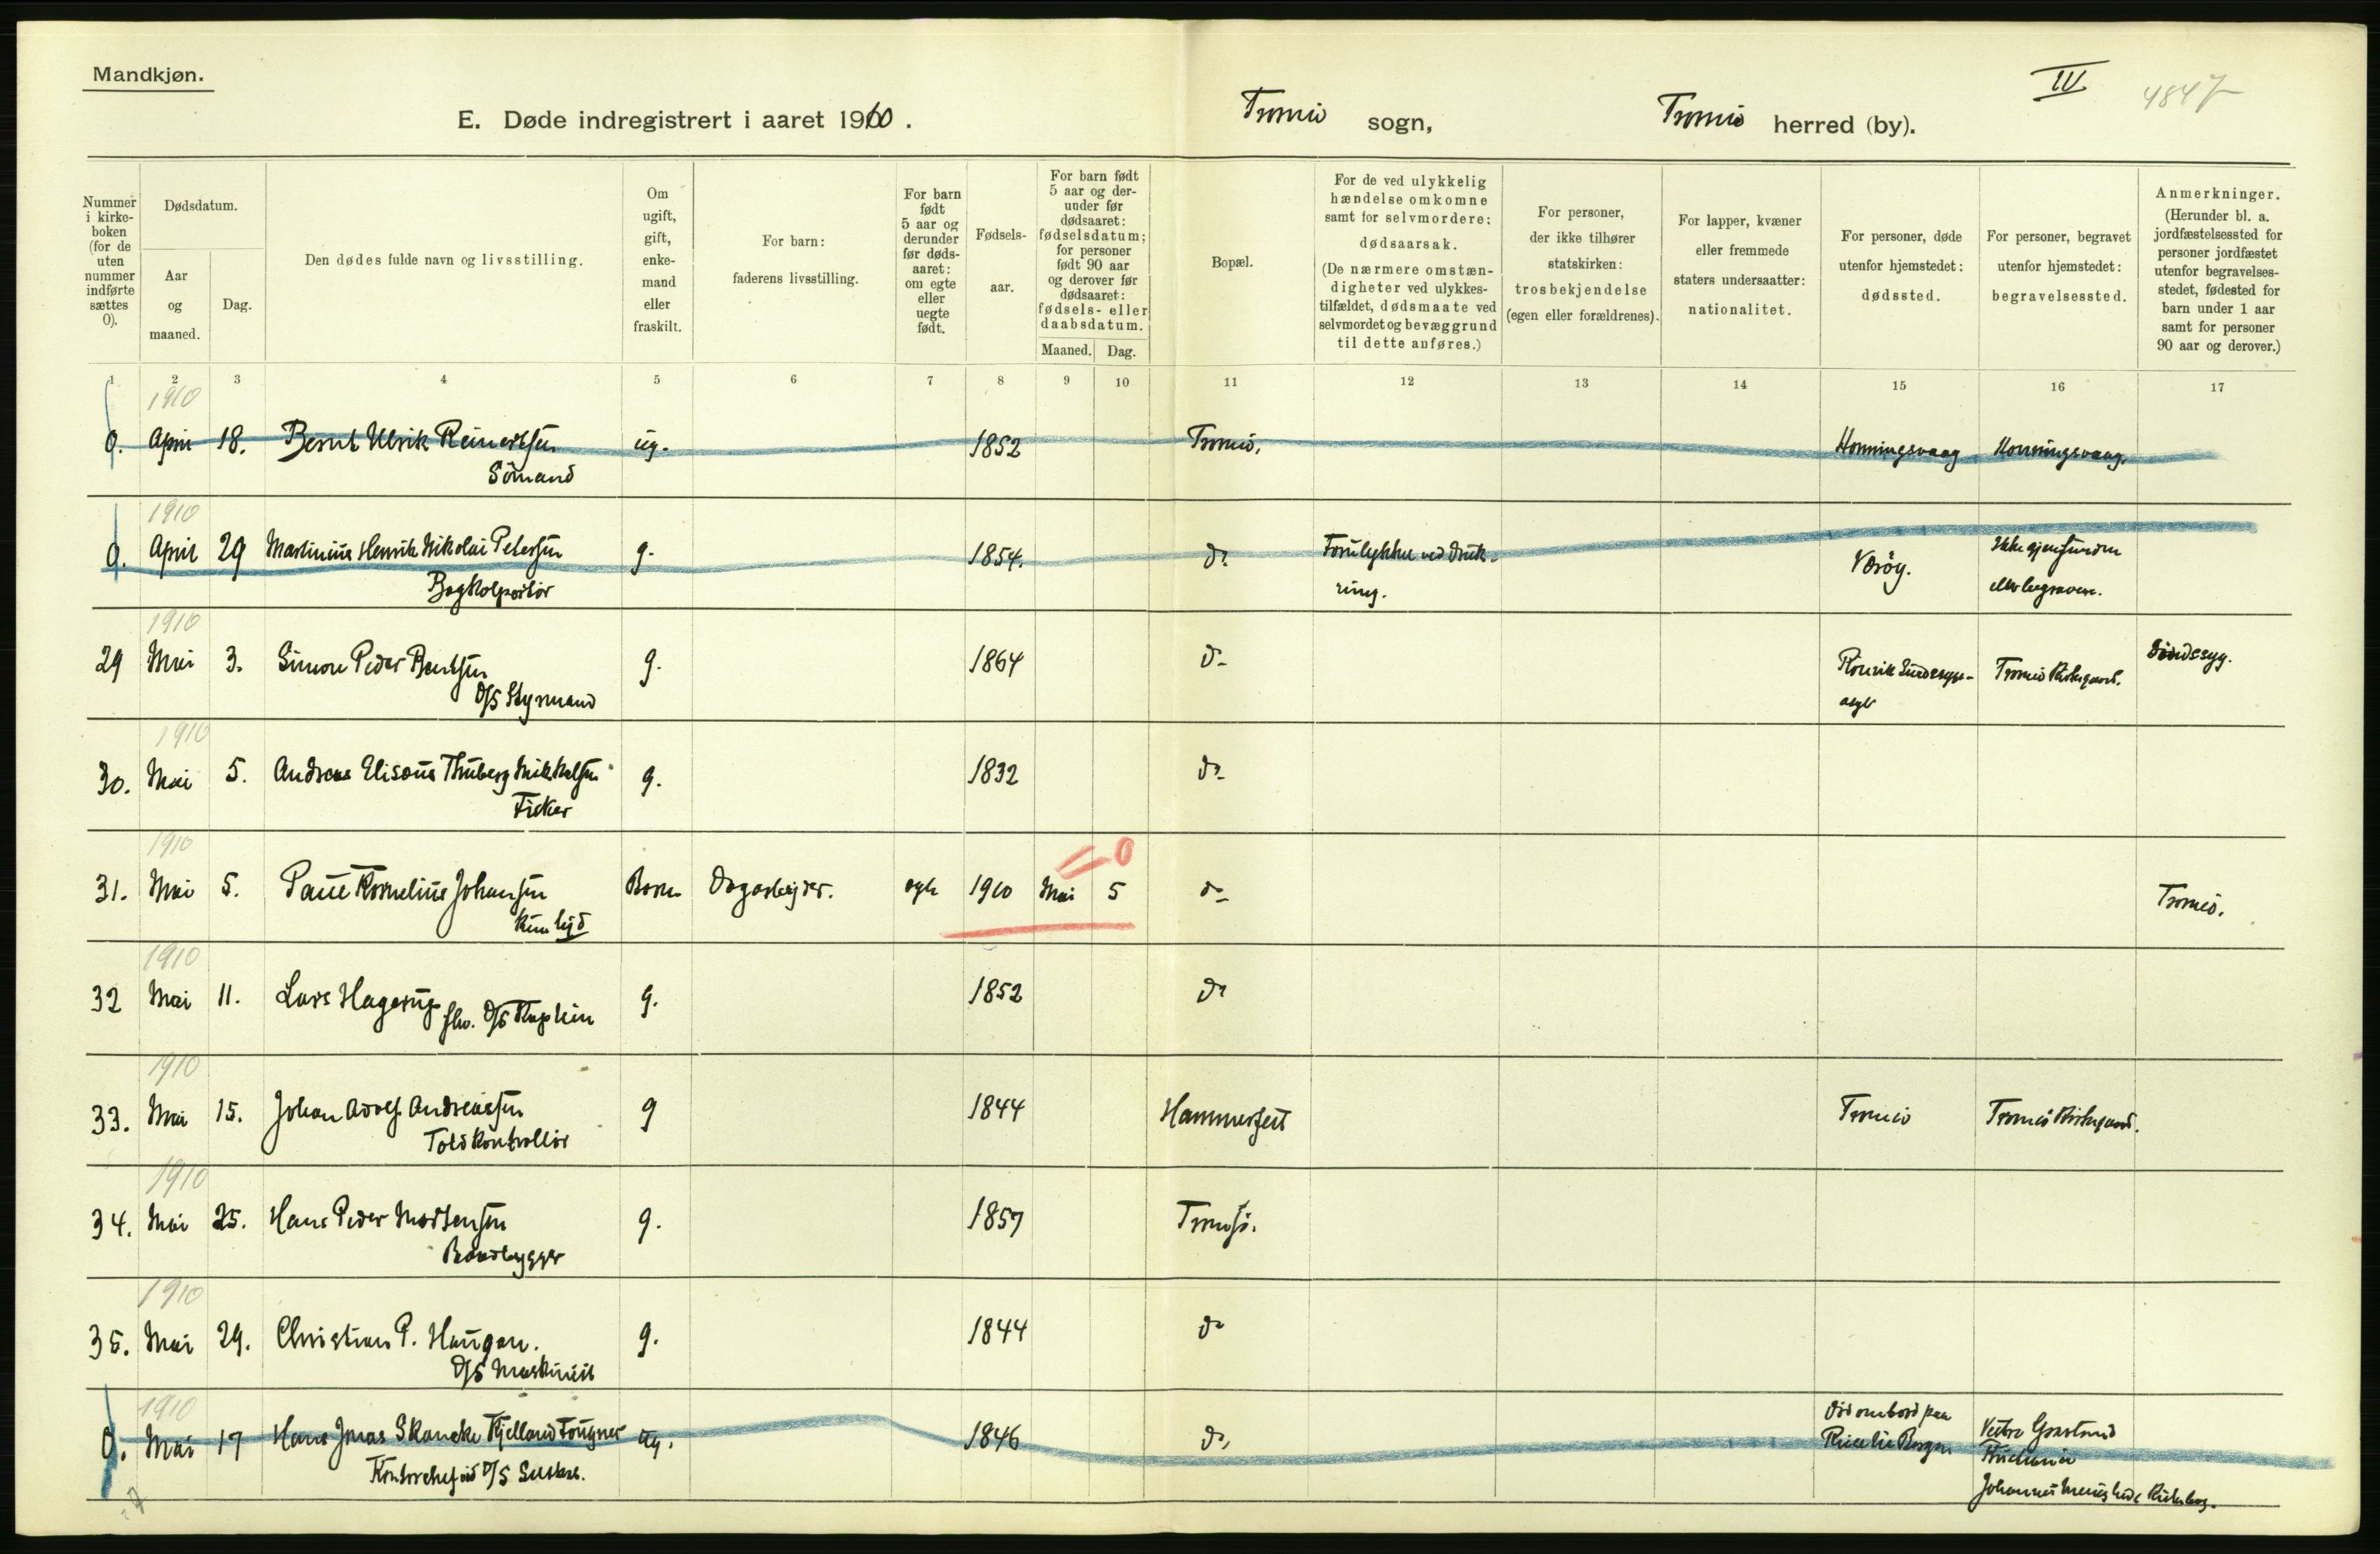 Mandkjøn.
IV
4847
E. Døde indregistrert i aaret 1910.
Tromsø sogn,
Tromsø herred (by).
Nummer i kirke-boken (for de uten nummer indførte sættes 0).
Dødsdatum.
Aar og maaned.
Dag.
Den dødes fulde navn og livsstilling.
Om ugift, gift, enke-mand eller fraskilt.
For barn: faderens livsstilling.
For barn født 5 aar og derunder før døds-aaret: om egte eller uegte født.
Fødsels-aar.
For barn født 5 aar og der-under før dødsaaret: fødselsdatum; for personer født 90 aar og derover før dødsaaret: fødsels- eller daabsdatum.
Maaned. Dag.
Bopæl.
For de ved ulykkelig hændelse omkomne samt for selvmordere: dødsaarsak. (De nærmere omstæn-digheter ved ulykkes-tilfældet, dødsmaate ved selvmordet og bevæggrund til dette anføres.)
For personer, der ikke tilhører statskirken: trosbekjendelse (egen eller forældrenes).
For lapper, kvæner eller fremmede staters undersaatter: nationalitet.
For personer, døde utenfor hjemstedet: dødssted.
For personer, begravet utenfor hjemstedet: begravelsessted.
Anmerkninger. (Herunder bl. a. jordfæstelsessted for personer jordfæstet utenfor begravelses-stedet, fødested for barn under 1 aar samt for personer 90 aar og derover.)
1 2 3 4 5 6 7 8 9 10 11 12 13 14 15 16 17
1910
0. April 18. Bernt Ulrik Reinertsen ug. 1852 Tromsö, Honningsvaag Honningsvaag.
Sömand
1910
0. April 29 Martinius Henrik Nikolai Petersen g. 1854. do. Forulykket ved Druk- Væröy. Ikke gjenfunden
Bogkolportör ning. eller begraven.
1910
29 Mai 3. Simon Peder Bentsen g. 1864 do Rönvik Sindssyge- Tromsö Kirkegaard. Sindssyg.
D/S Styrmand asyl
1910
30. Mai 5. Andreas Elisæus Thuberg Mikkelsen g. 1832 do
Fisker
1910
31. Mai 5. Paul Kornelius Johansen Barn Dagarbejder. egte 1910 Mai 5 do Tromsö.
0
1910
32 Mai 11. Lars Hagerup g. 1852 do
fhv. D/S Kaptein
1910
33. Mai 15. Johan Adolf Andreassen g 1844 Hammerfest Tromsö Tromsö Kirkegaard.
Toldkontrollör
1910
34. Mai 25. Hans Peder Mortensen g. 1857 Tromsö.
Baadbygger
1910
35. Mai 29. Christian P. Haugan. g. 1844 do
D/S Maskinist
1910
0. Mai 17 Hans Jonas Skancke Kjelland Fougner ug. 1846 do, Död ombord paa Vestre Gravlund